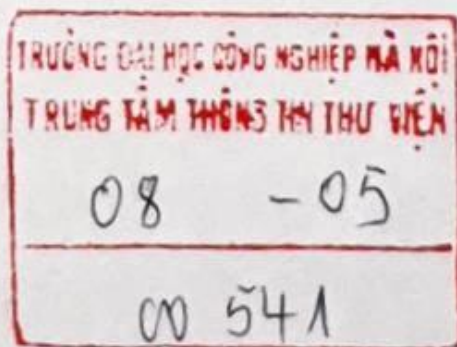 TRƯỜNG ĐẠI HỌC CÔNG NGHIỆP HÀ NỘI
TRUNG TÂM THÔNG TIN THƯ VIỆN
08 - 05
00 541